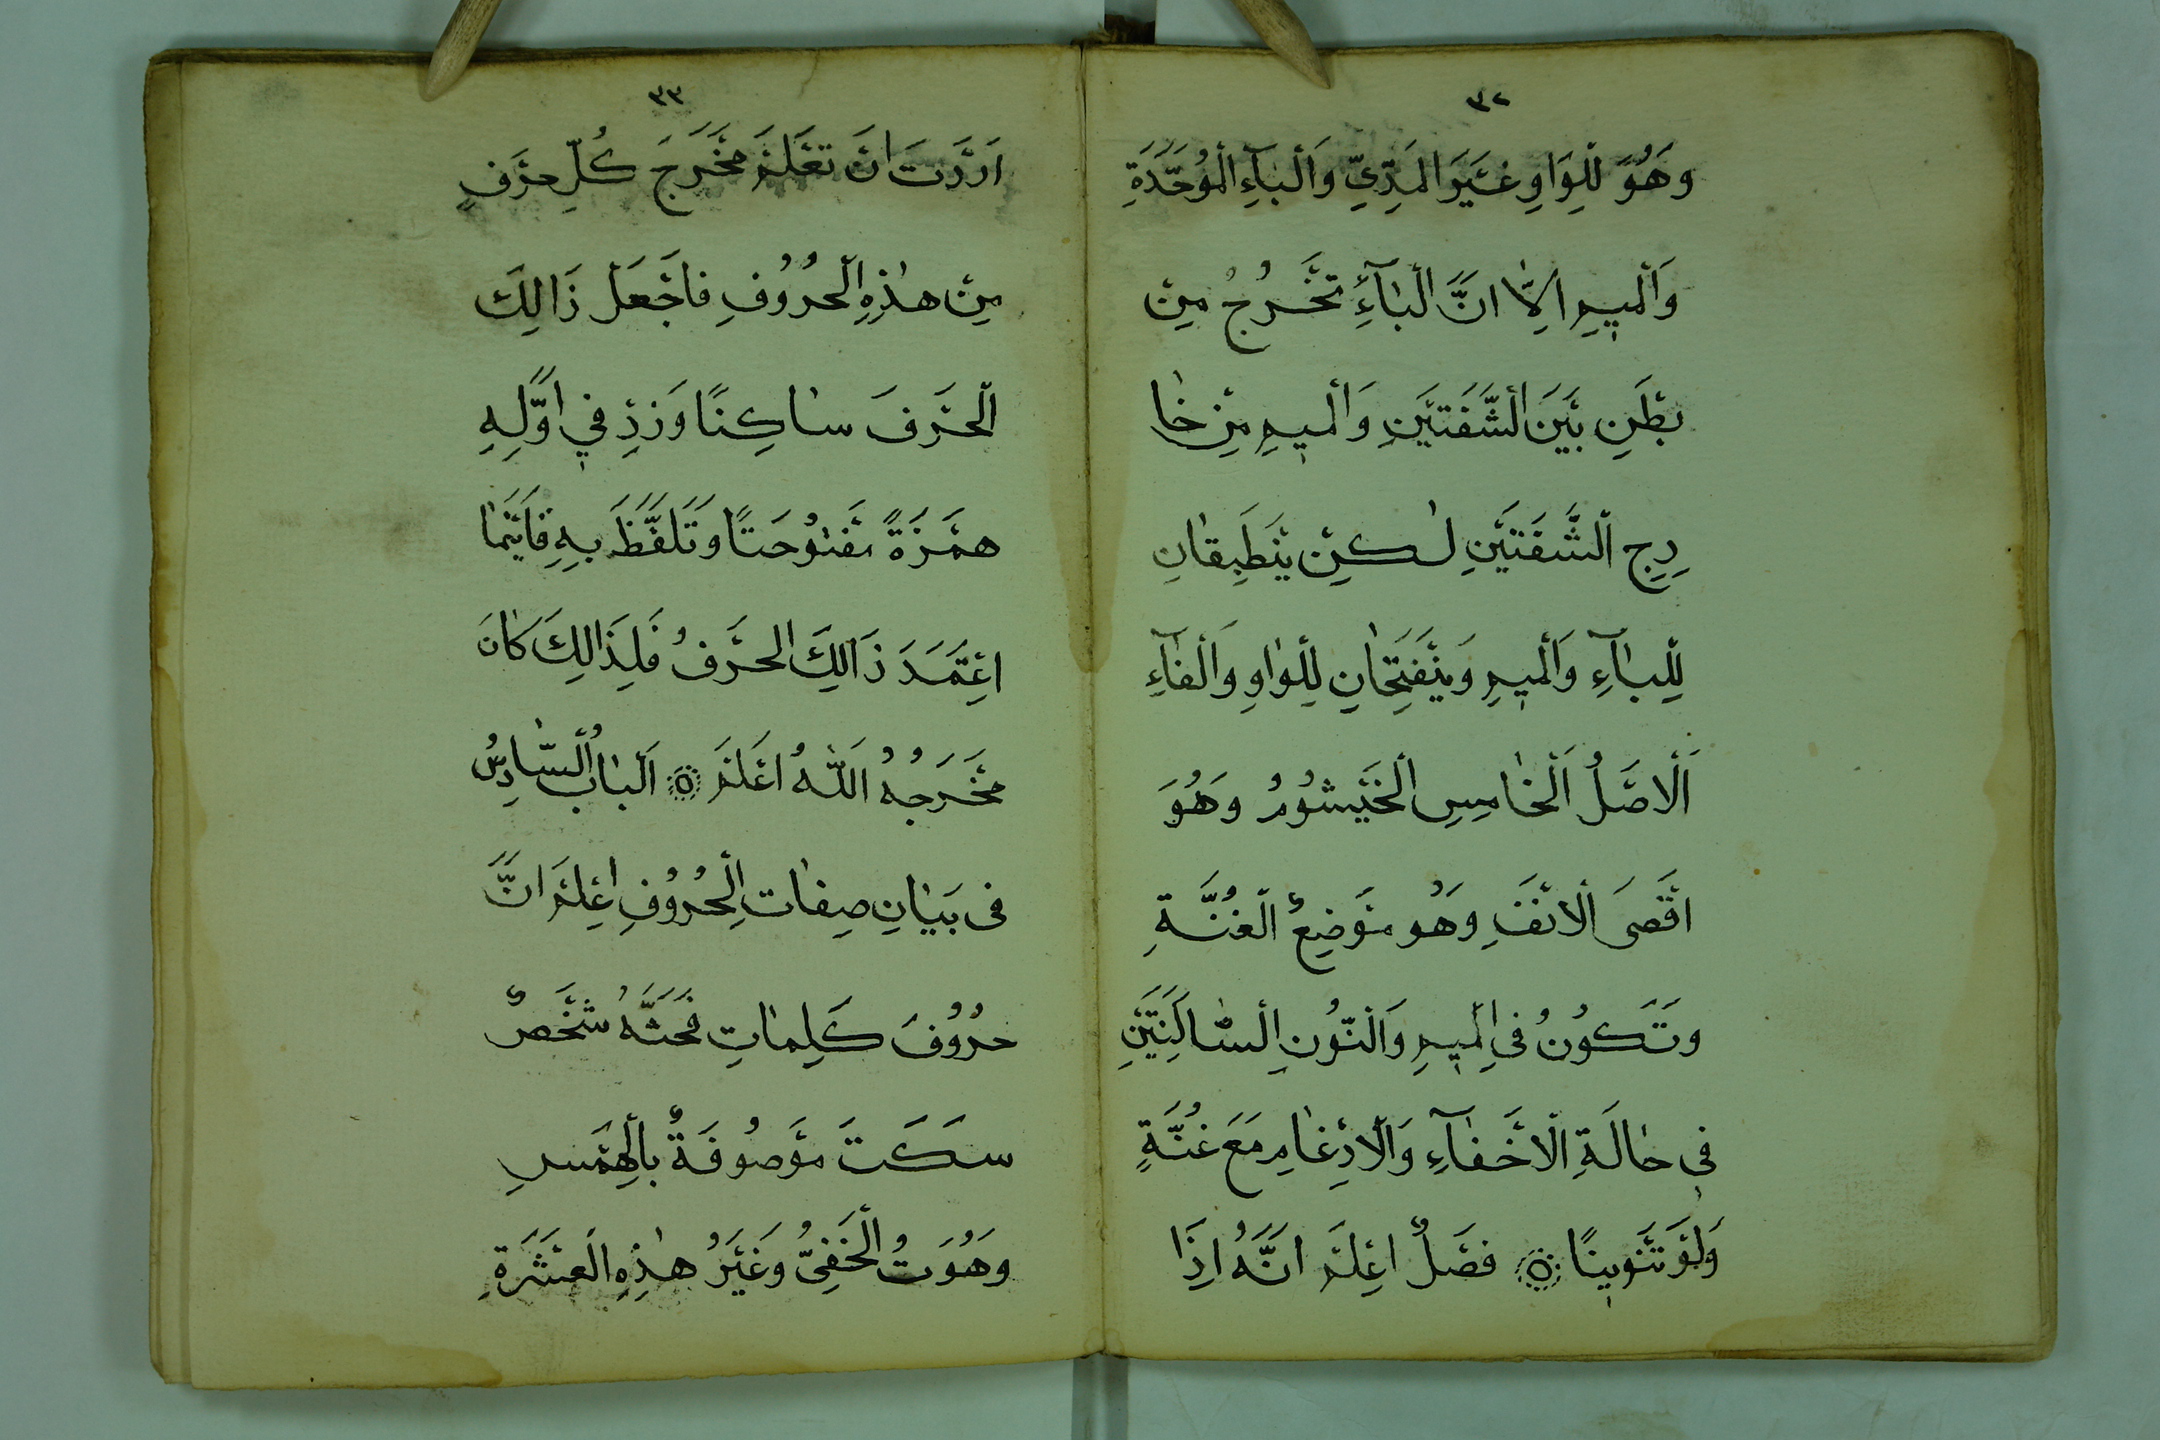 ٣٢
وَهُوَ لِلْوَاوِ غَيْرَ الْمَدِّيِّ وَالْبَآءِ الْمُوَحَّدَةِ
وَالْمِيمِ اِلَّا اَنَّ الْبَآءَ تَخْرُجُ مِنْ
بَطْنِ بَيْنَ الشَّفَتَيْنِ وَالْمِيمِ مِنْ خَا
رِجِ الشَّفَتَيْنِ لٰكِنْ يَنْطَبِقَانِ
لِلْبَآءِ وَالْمِيمِ وَيَنْفَتِحَانِ لِلْوَاوِ وَالْفَآءِ
اَلْاَصْلُ الْخَامِسِ الْخَيْشُومُ وَهُوَ
اَقْصَى الْاَنْفِ وَهُوَ مَوْضِعُ الْغُنَّةِ
وَتَكُونُ فِى الْمِيمِ وَالنُّونِ السَّاكِنَتَيْنِ
فِى حَالَةِ الْاَخْفَآءِ وَالْاِدْغَامِ مَعَ غُنَّةٍ
وَلَوْ تَنْوِينًا ۞ فَصْلٌ اِعْلَمْ اَنَّهُ اِذَا
٣٣
اَرَدْتَ اَنْ تَعْلَمَ مَخْرَجَ كُلِّ حَرْفٍ
مِنْ هٰذِهِ الْحُرُوفِ فَاجْعَلْ ذَالِكَ
الْحَرْفَ سَاكِنًا وَزِدْ فِى اَوَّلِهِ
هَمْزَةً مَفْتُوحَتًا وَتَلَفَّظَ بِهِ فَاَيْنَمَا
اِعْتَمَدَ ذَالِكَ الْحَرْفُ فَلِذَالِكَ كَانَ
مَخْرَجُهُ اَللّٰهُ اَعْلَمْ ۞ اَلْبَابُ السَّادِسُ
فِى بَيَانِ صِفَاتِ الْحُرُوفِ اِعْلَمْ اَنَّ
حُرُوفَ كَلِمَاتِ فَحَثَّهُ شَخْصٌ
سَكَتَ مَوْصُوفَةٌ بِالْهَمْسِ
وَهُوَ صَوْتُ الْخَفِىُّ وَغَيْرُ هٰذِهِ الْعَشَرَةِ